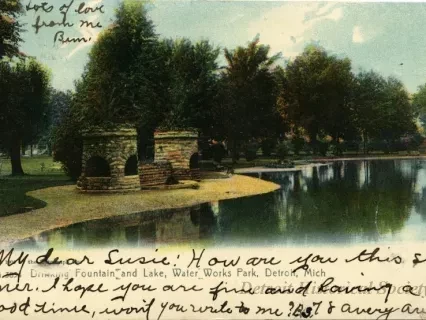 Lots of love
from me
My dear Susie! How are you this s
Drinking Fountain and Lake, Water Works Park, Detroit, Mich
mer. I hope you are fine and having a
Detroit Historical Society
ood time, won't you write to me? & avery are